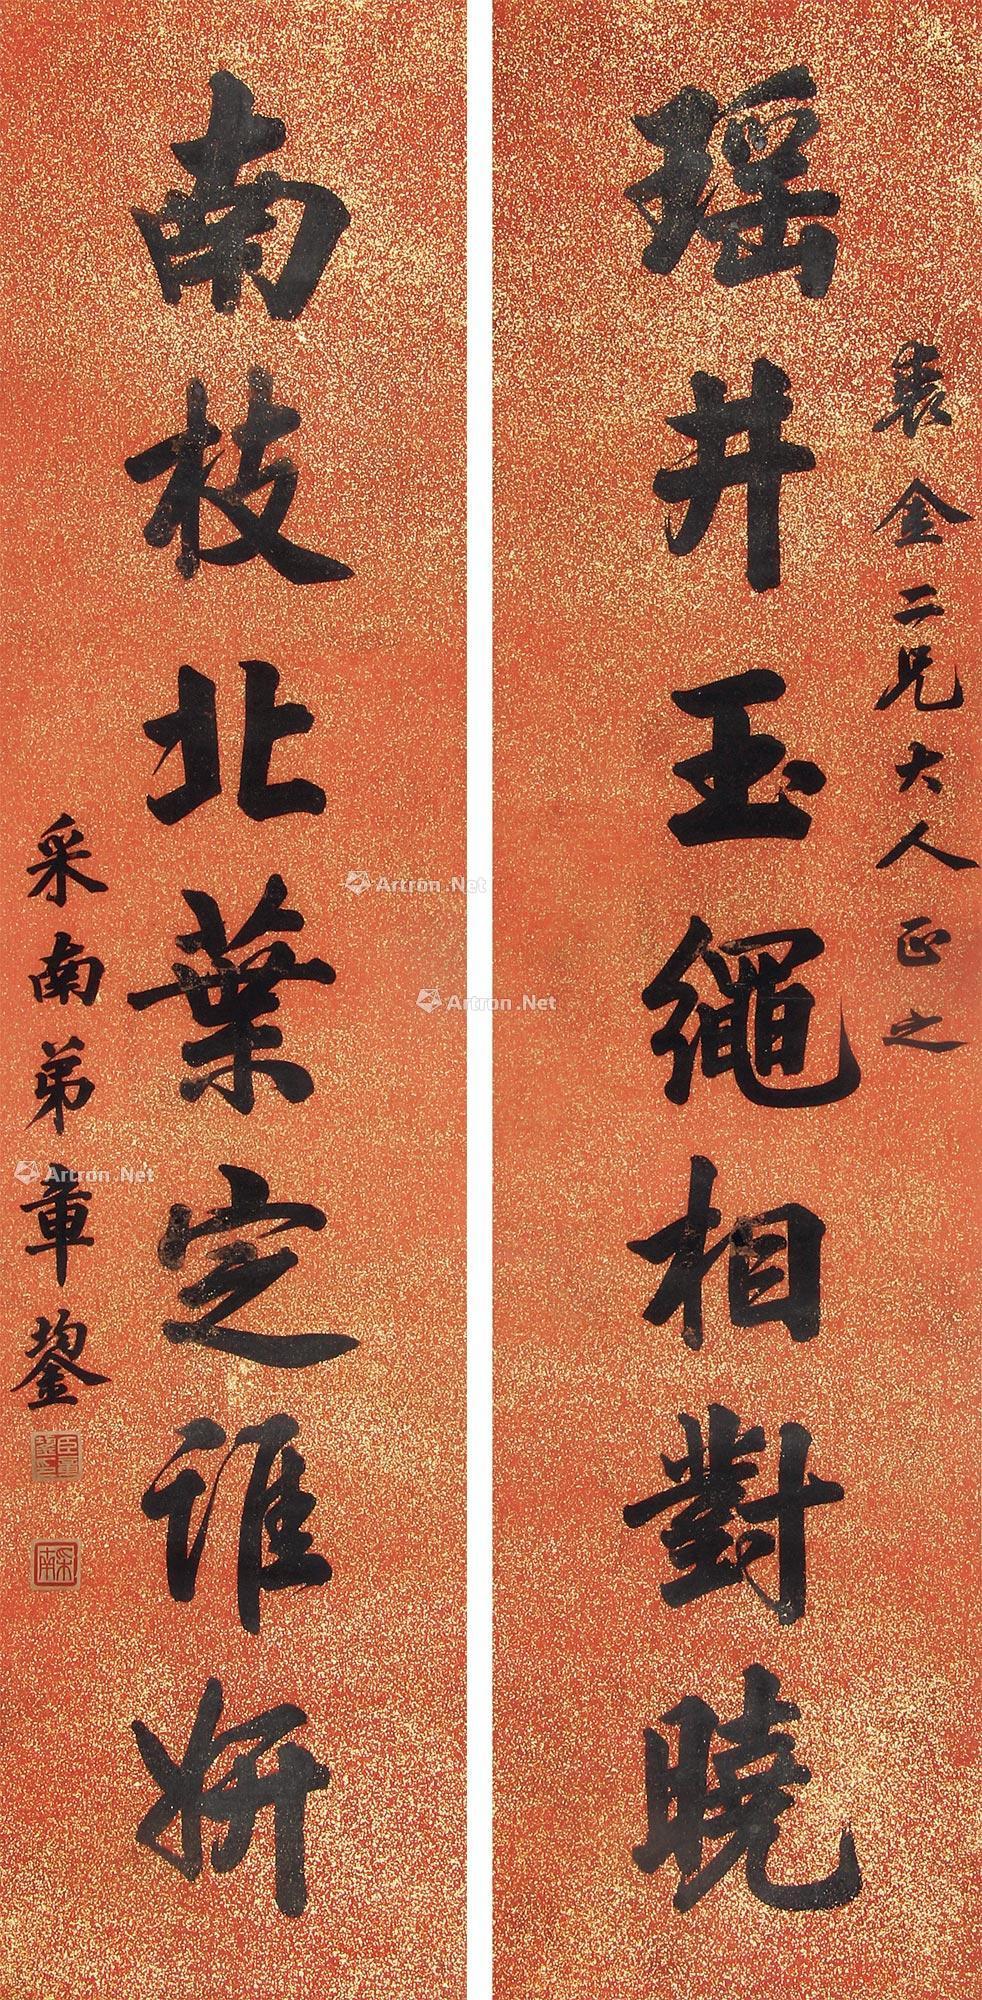 瑶井玉繩相對曉
裘金二兄大人正之
南枝北葉定誰妍
采南弟章鋆
臣章鋆印
采南
Artron.Net
Artron.Net
Artron.Net